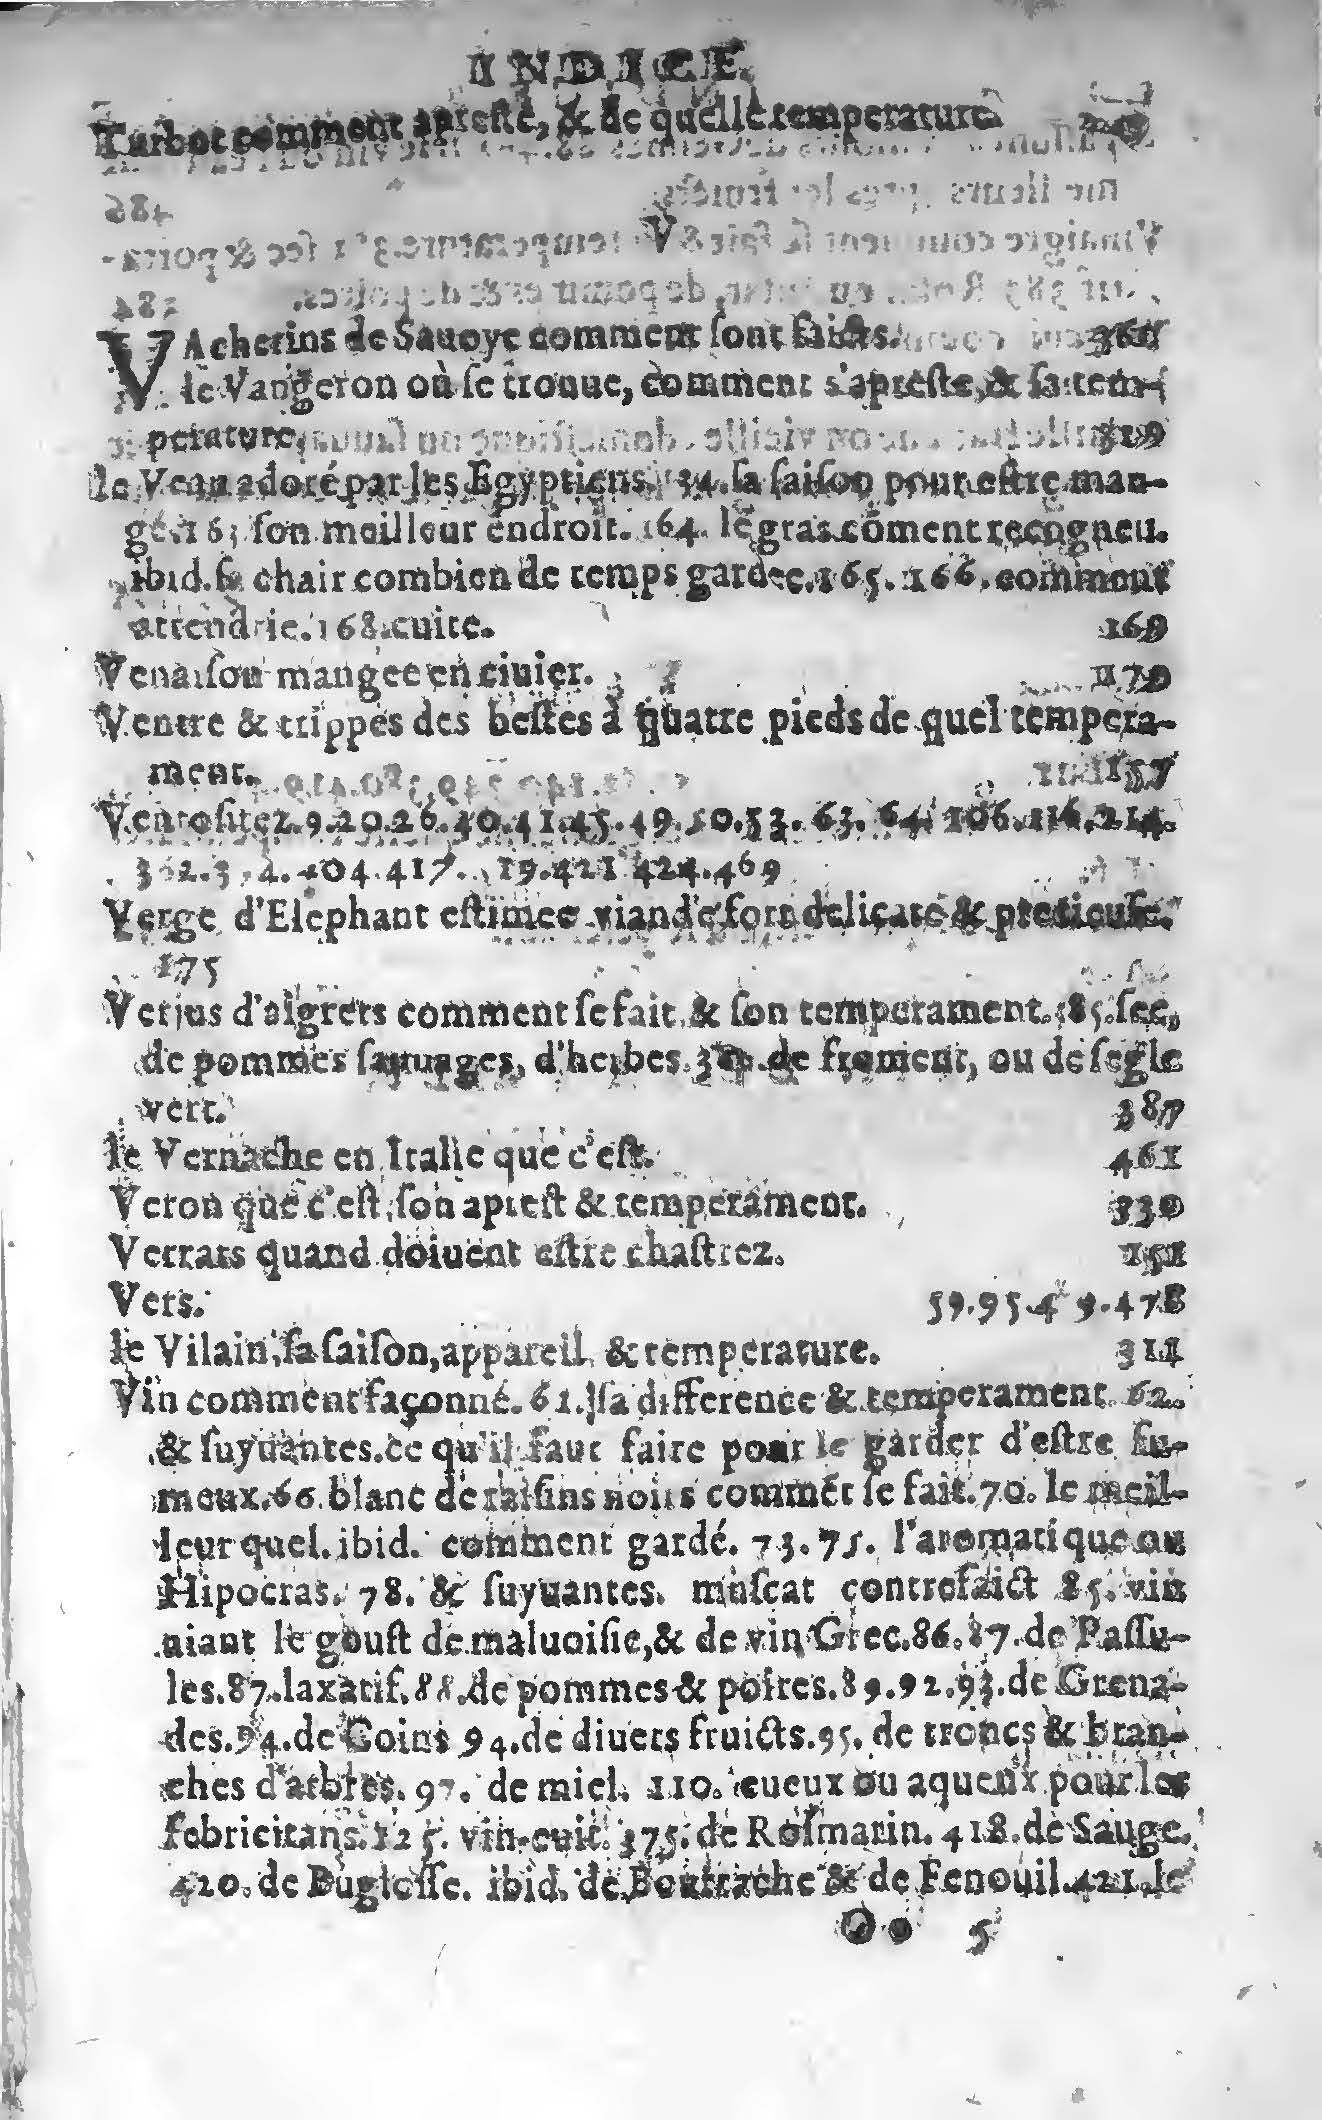 INDICE
Turbot comment apresté, & de quelle temperature
V
VAcherins de Sauoye comment sont faicts. 360
le Vangeron où se trouue, comment s'apreste, & sa tem-
perature. 319
le Veau adoré par les Egyptiens. 134. sa saison pour estre man-
gé. 163 son meilleur endroit. 164. le gras cōment recogneu.
ibid. sa chair combien de temps gardee. 165. 166. comment
attendrie. 168. cuite. 169
Venaison mangee en ciuier. 170
Ventre & trippes des bestes à quatre pieds de quel tempera-
ment. 157
Ventositez. 9. 20. 26. 40. 41. 45. 49. 50. 53. 63. 64. 106. 116. 214.
404. 417. 421 424. 469
Verge d'Elephant estimee viande fort delicate & precieuse.
175
Verjus d'aigrets comment se fait, & son temperament. sec,
de pommes sauuages, d'herbes. de froment, ou de segle
vert. 387
le Vernache en Italie que c'est. 461
Veron que c'est, son aprest & temperament. 330
Verrats quand doiuent estre chastrez. 151
Vers. 59. 95. 478
le Vilain, sa saison, appareil, & temperature. 311
Vin comment façonné. 61. sa difference & temperament. 62.
& suyuantes. ce qu'il faut faire pour le garder d'estre fu-
meux. 66. blanc de raisins noirs commēt se fait. 70. le meil-
leur quel. ibid. comment gardé. 73. 75. l'aromatique ou
Hipocras. 78. & suyuantes. muscat contrefaict 85. vin
aiant le goust de maluoisie, & de vin Grec. 86. 87. de Passu-
les. 87. laxatif. 88. de pommes & poires. 89. 92. 93. de Grena-
des. 94. de Coins 94. de diuers fruicts. 95. de troncs & bran-
ches d'arbres. 97. de miel. 110. cueux ou aqueux pour les
febricitans. 125. vin cuit. 375. de Rosmarin. 418. de Sauge.
420. de Buglosse. ibid. de Bourrache & de Fenouil. 421. le
Oo 5